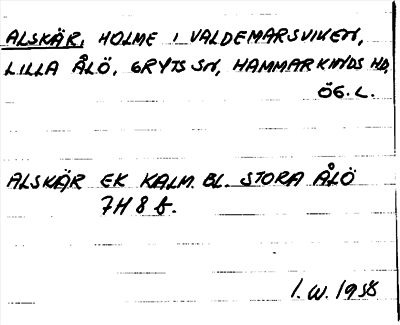 ALSKÄR, HOLME I VALDEMARSVIKEN,
LILLA ÅLÖ, GRYTS SN, HAMMARKINDS HD,
ÖG. L.
ALSKÄR EK KALM. BL. STORA ÅLÖ
7H 8 f.
I. W. 1958